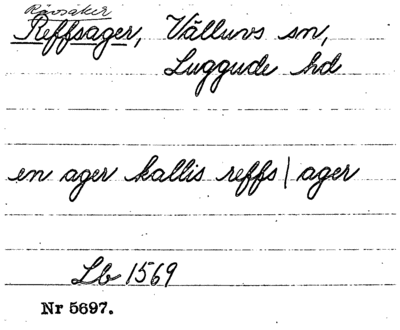 Rävsåker
Reffsager, Välluvs sn,
Luggude hd
en ager kallis reffs|ager
Lb 1569
Nr 5697.